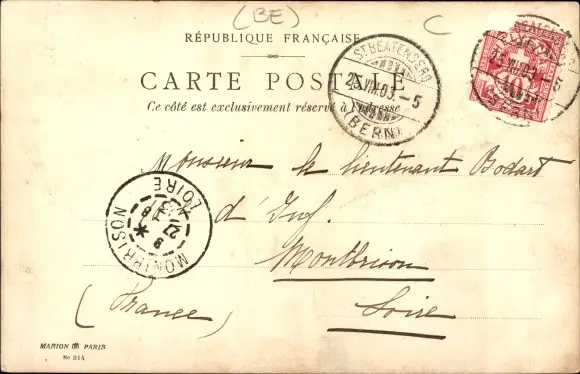 (BE)
C
RÉPUBLIQUE FRANÇAISE
CARTE POSTALE
Ce côté est exclusivement réservé à l'adresse
ST. BEATENBERG
25.VIII.03.–5
(BERN)
Monsieur le lieutenant Bodart
d'Inf.
Montbrison
Loire
(France)
MONTBRISON
LOIRE
MARION PARIS
No 314